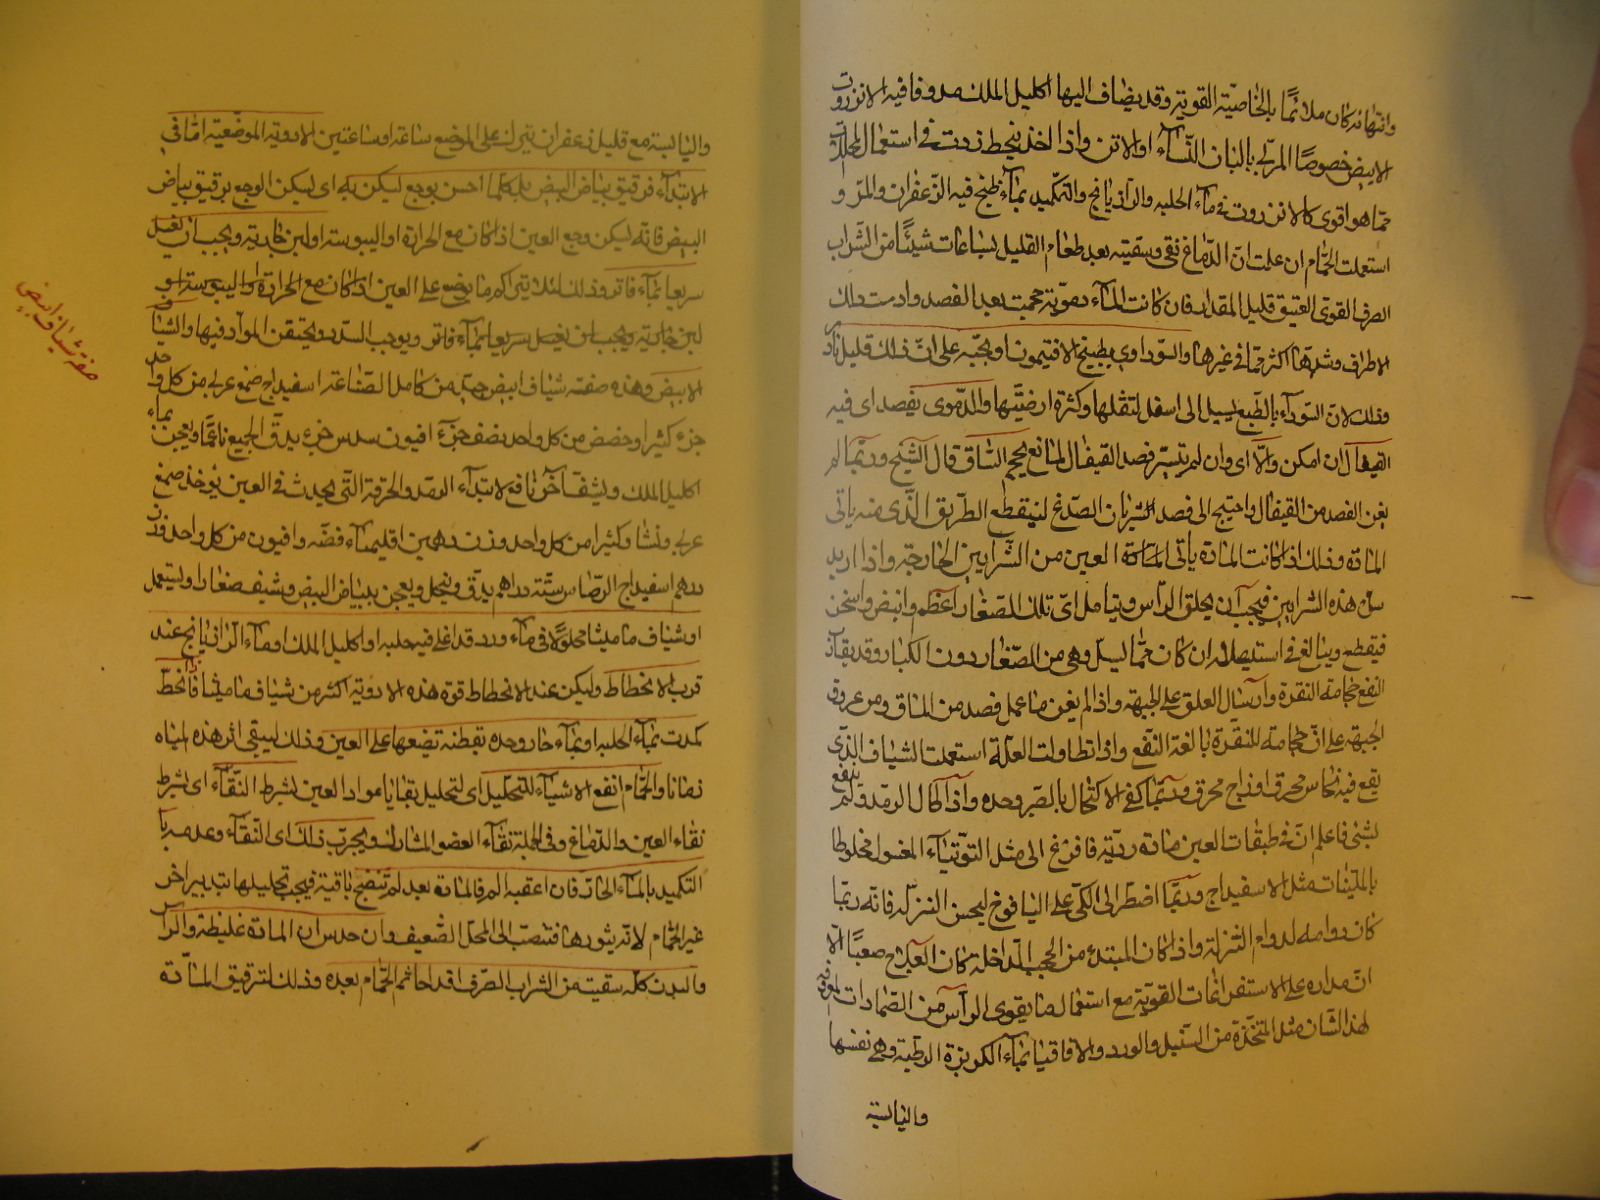 وانتهائه كان ملائمًا بالخاصيّة القوية وقد يضاف اليها اكليل الملك مدوفا فيه الانزروت
الابيض خصوصًا المربّى بالبان النّساء او الاتن واذا اخذ ينحط زدت في استعمال المحللات
ممّا هو اقوى كالانزروت في ماء الحلبه والرازيانج والتكميد بماء طبخ فيه الزعفران والمرّ و
استعملت الحمّام ان علمت انّ الدّماغ نقى وسقيته بعد طعام القليل بساعات شيئًا من الشراب
الصرف القوى العتيق قليل المقدار فان كانت المادّة دمويّة حجمت بعد الفصد وادمت دلك
الاطراف وشدّها اكثر ممّا في غيرها والسّوداوى بطبيخ الافتيمون او بحبّه على انّ ذلك قليل
وذلك لانّ السّوداء بالطّبع يسيل الى اسفل لثقلها وكثرة ارضيّتها والدّموى بفصد اى فيه
القيفال ان امكن والّا اى وان لم يتيسّر فصد القيفال لمانع بحجم السّاق قال الشّيخ وربّما لم
يغن الفصد من القيفال واحتيج الى فصد الشريان الصّدغ لينقطع الطريق الّذى منه ياتى
المادّة وذلك اذا كانت المادّة ياتى العين من الشّرايين الخارجة واذا اريد
سلّ هذه الشرايين فيجب ان يحلق الرّأس ويتامل اىّ تلك الصّغار اعظم وانبض واسخن
فيقطع ويبالغ في استيصاله ان كان ممّا يسلّ وهى من الصّغار دون الكبار وقد
النّفع حجامة النقرة وارسال العلق على الجبهة واذا لم يغن ما عمل فصد من المٰاق ومن عروق
الجبهة على انّ حجامة النقرة بالغة النّفع واذا تطاولت العلّة استعملت الشياف الّذى
يقع فيه نحاس محرق او زاج محرق وربّما كفى الاكتحال بالصّبر وحده واذا طال الرمد ولم ينفع
بشئ فاعلم انّ في طبقات العين مادّة رديّة فافزع الى مثل التوتياء المغسول مخلوطا
بالمليّنات مثل الاسفيداج وربّما اضطرّ الى الكىّ على اليافوخ ليحبس النزلة فانّه ربّما
كان دوامه لدوام النّزلة واذا كان المبتدئ من الحجب الدّاخلة كان العلاج صعبًا الّا
انّ مداره على الاستفراغات القويّة مع استعمال ما يقوى الرأس من الضّمادات المعروفة
لهذا الشّان مثل المتّخذة من السّنبل والورد والاقاقيا بماء الكزبرة الرطبة وهى نفسها
واليابسة
واليابسة مع قليل زعفران يترك على الموضع ساعة او ساعتين الادوية الموضعيّة امّا في
الابتداء فرقيق بياض البيض بل كلّما احسن بوجع ليكن به اى ليكن الوجع برقيق بياض
البيض فانّه ليكن وجع العين اذا كان مع الحرارة او اليبوسة او لبن جارية ويجب ان يغسل
سريعا بماء فاتر وذلك لئلا يتراكم ما يوضع على العين اذا كان مع الحرارة او اليبوسة او
لبن جارية ويجب ان يغسل سريعا بماء فاتر ويوجب السّدد ويحتقن الموادّ فيها والشياف
الابيض وهذه صفته شياف ابيض جيّد من كامل الصّناعة اسفيداج صمغ عربى من كل واحد
جزء كثيرا وحضض من كل واحد نصف جزء افيون سدس جزء يدقّ الجميع ناعمًا ويعجن بماء
اكليل الملك ويشيّف آخر نافع لابتداء الرمد والحرقة الّتى يحدث في العين يؤخذ صمغ
عربى ونشا وكثيرا من كل واحد وزن درهمين اقليمياء فضّه وافيون من كل واحد وزن
درهم اسفيداج الرّصاص ستّة دراهم يدقّ وينخل ويعجن ببياض البيض ويشيف صغارا ويستعمل
او شياف ماميثا محلولا في ماء ورد قد اغلى فيه حلبه او اكليل الملك او ماء الرّازيانج عند
قرب الانحطاط وليكن عند الانحطاط قوة هذه الادوية اكثر من شياف ماميثا فاذا انحطّ
كمدت بماء الحلبه او بماء حار وحده بقطنة تضعها على العين وذلك ليبقى اثر هذه المياه
زمانا والحمّام انفع الاشياء للتّحليل اى لتحليل بقايا مواد العين بشرط النّقاء اى بشرط
نقاء العين والدّماغ وفى الجملة نقاء العضو المشارك ويجرّب ذلك اى النّقاء وعدمه با
التكميد بالماء الحار فان اعقبه الم فالمادة بعد لم تنضج باقية فيجب تحليلها بتدبير اخر
غير الحمّام لانّه يثورها فتنصب الى المحل الضّعيف وان حدس ان المادة غليظة والرأ
والبدن كلّه سقيته من الشراب الصّرف اقداحا ثم الحمّام بعده وذلك لترقيق المادّة
صفة شياف ابيض